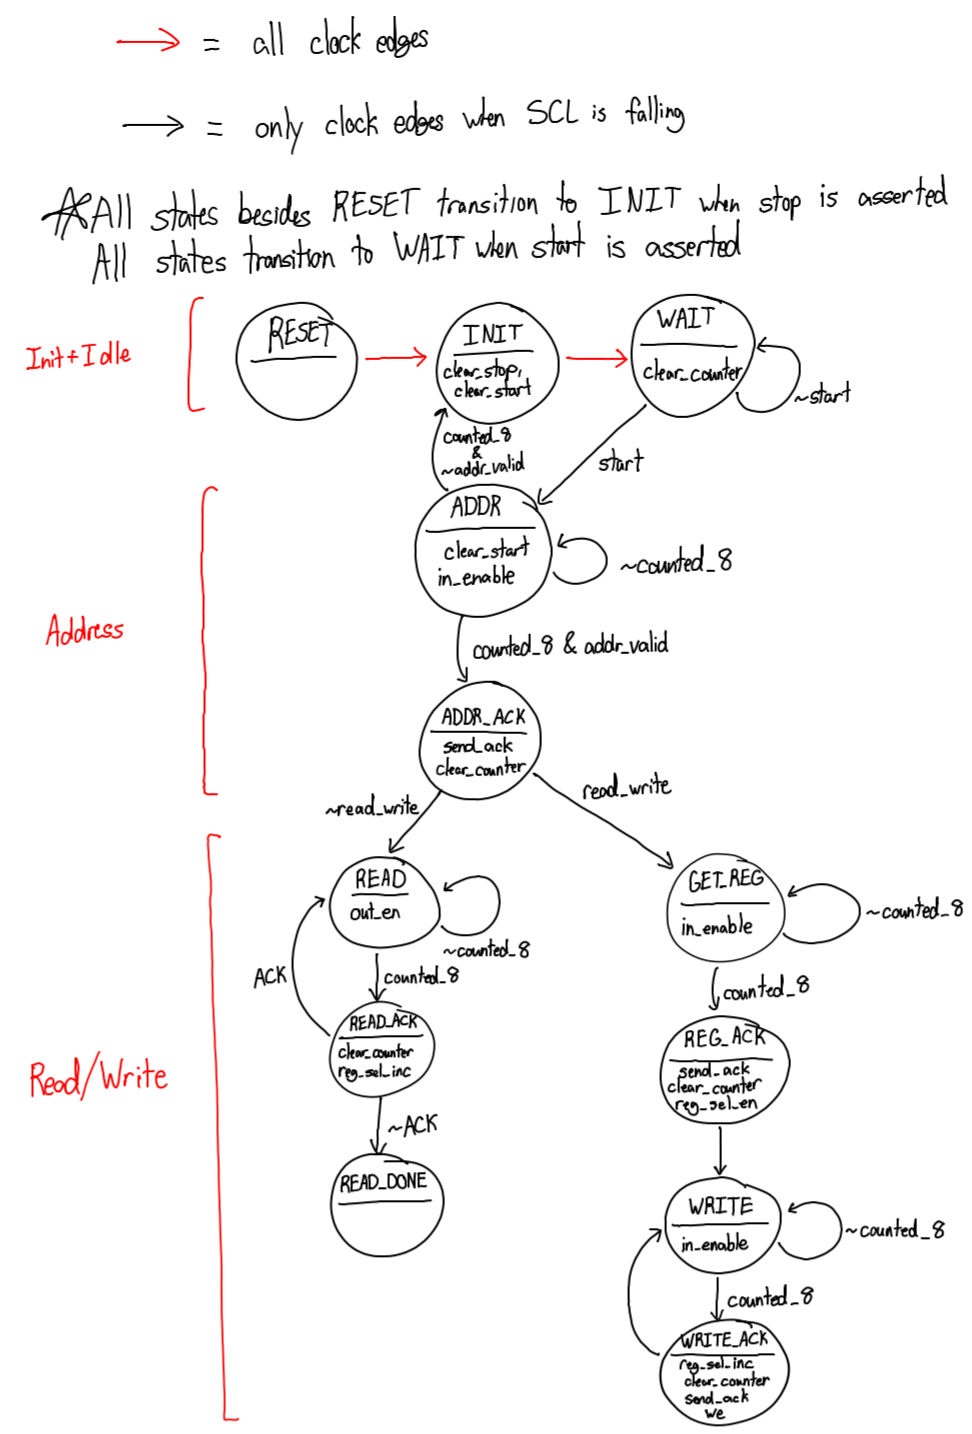 = all clock edges
= only clock edges when SCL is falling
All states besides RESET transition to INIT when stop is asserted
All states transition to WAIT when start is asserted
Init + Idle
RESET
INIT
clear_stop,
clear_start
WAIT
clear_counter
~start
counted_8
&
~addr_valid
start
Address
ADDR
clear_start
in_enable
~counted_8
counted_8 & addr_valid
ADDR_ACK
send_ack
clear_counter
~read_write
read_write
Read/Write
READ
out_en
~counted_8
counted_8
ACK
READ_ACK
clear_counter
reg_sel_inc
~ACK
READ_DONE
GET_REG
in_enable
~counted_8
counted_8
REG_ACK
send_ack
clear_counter
reg_sel_en
WRITE
in_enable
~counted_8
counted_8
WRITE_ACK
reg_sel_inc
clear_counter
send_ack
we